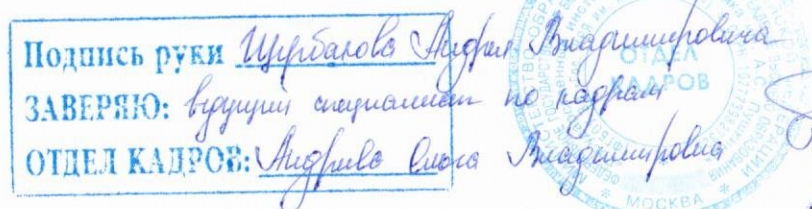 Подпись руки Щербакова Андрея Владимировича
ЗАВЕРЯЮ: ведущий специалист по кадрам
ОТДЕЛ КАДРОВ: Андреева Ольга Владимировна
ОТДЕЛ
КАДРОВ
МОСКВА